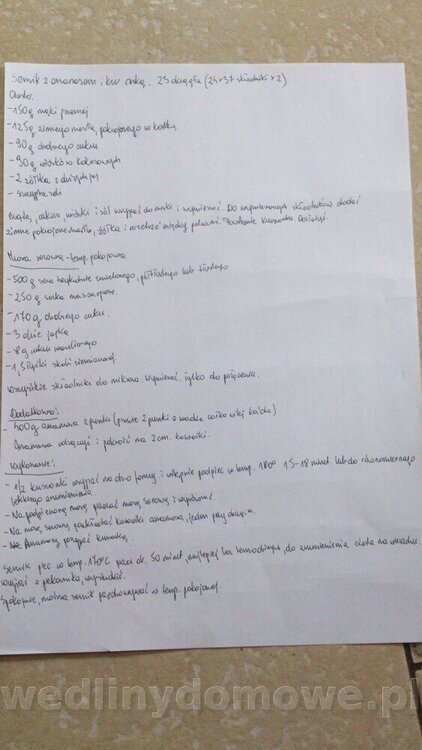 Sernik z ananasem i kruszonką. 23 okrągła (24x37 składniki x2)
Ciasto:
- 150g mąki pszennej
- 125g zimnego masła, pokrojonego w kostkę
- 90g drobnego cukru
- 90g wiórków kokosowych
- 2 żółtka z dużych jaj
- szczypta soli
Mąkę, cukier, wiórki i sól wsypać do miski i wymieszać. Do wymieszanych składników dodać
zimne pokrojone masło, żółtka i rozetrzeć między palcami. Powstanie kruszonka
Masa serowa - temp. pokojowa
- 500g sera trzykrotnie zmielonego, półtłustego lub tłustego
- 250g serka mascarpone
- 170g drobnego cukru
- 3 duże jajka
- cukru waniliowego
- 1,5 łyżki skrobi ziemniaczanej
Wszystkie składniki do miksera. Wymieszać tylko do połączenia.
Dodatkowo:
- 500g ananasa z puszki (puszki o wadze każda)
Ananasa odsączyć i pokroić na 2cm. kawałki.
Wykonanie:
- 1/2 kruszonki wysypać na dno formy i wstępnie podpiec w temp. 180° 15-18 minut. lub do równomiernego
lekkiego zrumienienia
- Na podpieczoną masę serową i wyrównać.
- Na masę serową poukładać kawałki ananasa, jeden przy drugim.
- Ananasy posypać kruszonką.
Sernik piec w temp. 170°C przez ok. 50 minut, najlepiej bez termoobiegu, do zrumienienia ciasta na wierzchu.
Wyjąć z piekarnika, wystudzić.
Spokojnie, można sernik przechowywać w temp. pokojowej.
wedlinydomowe.pl